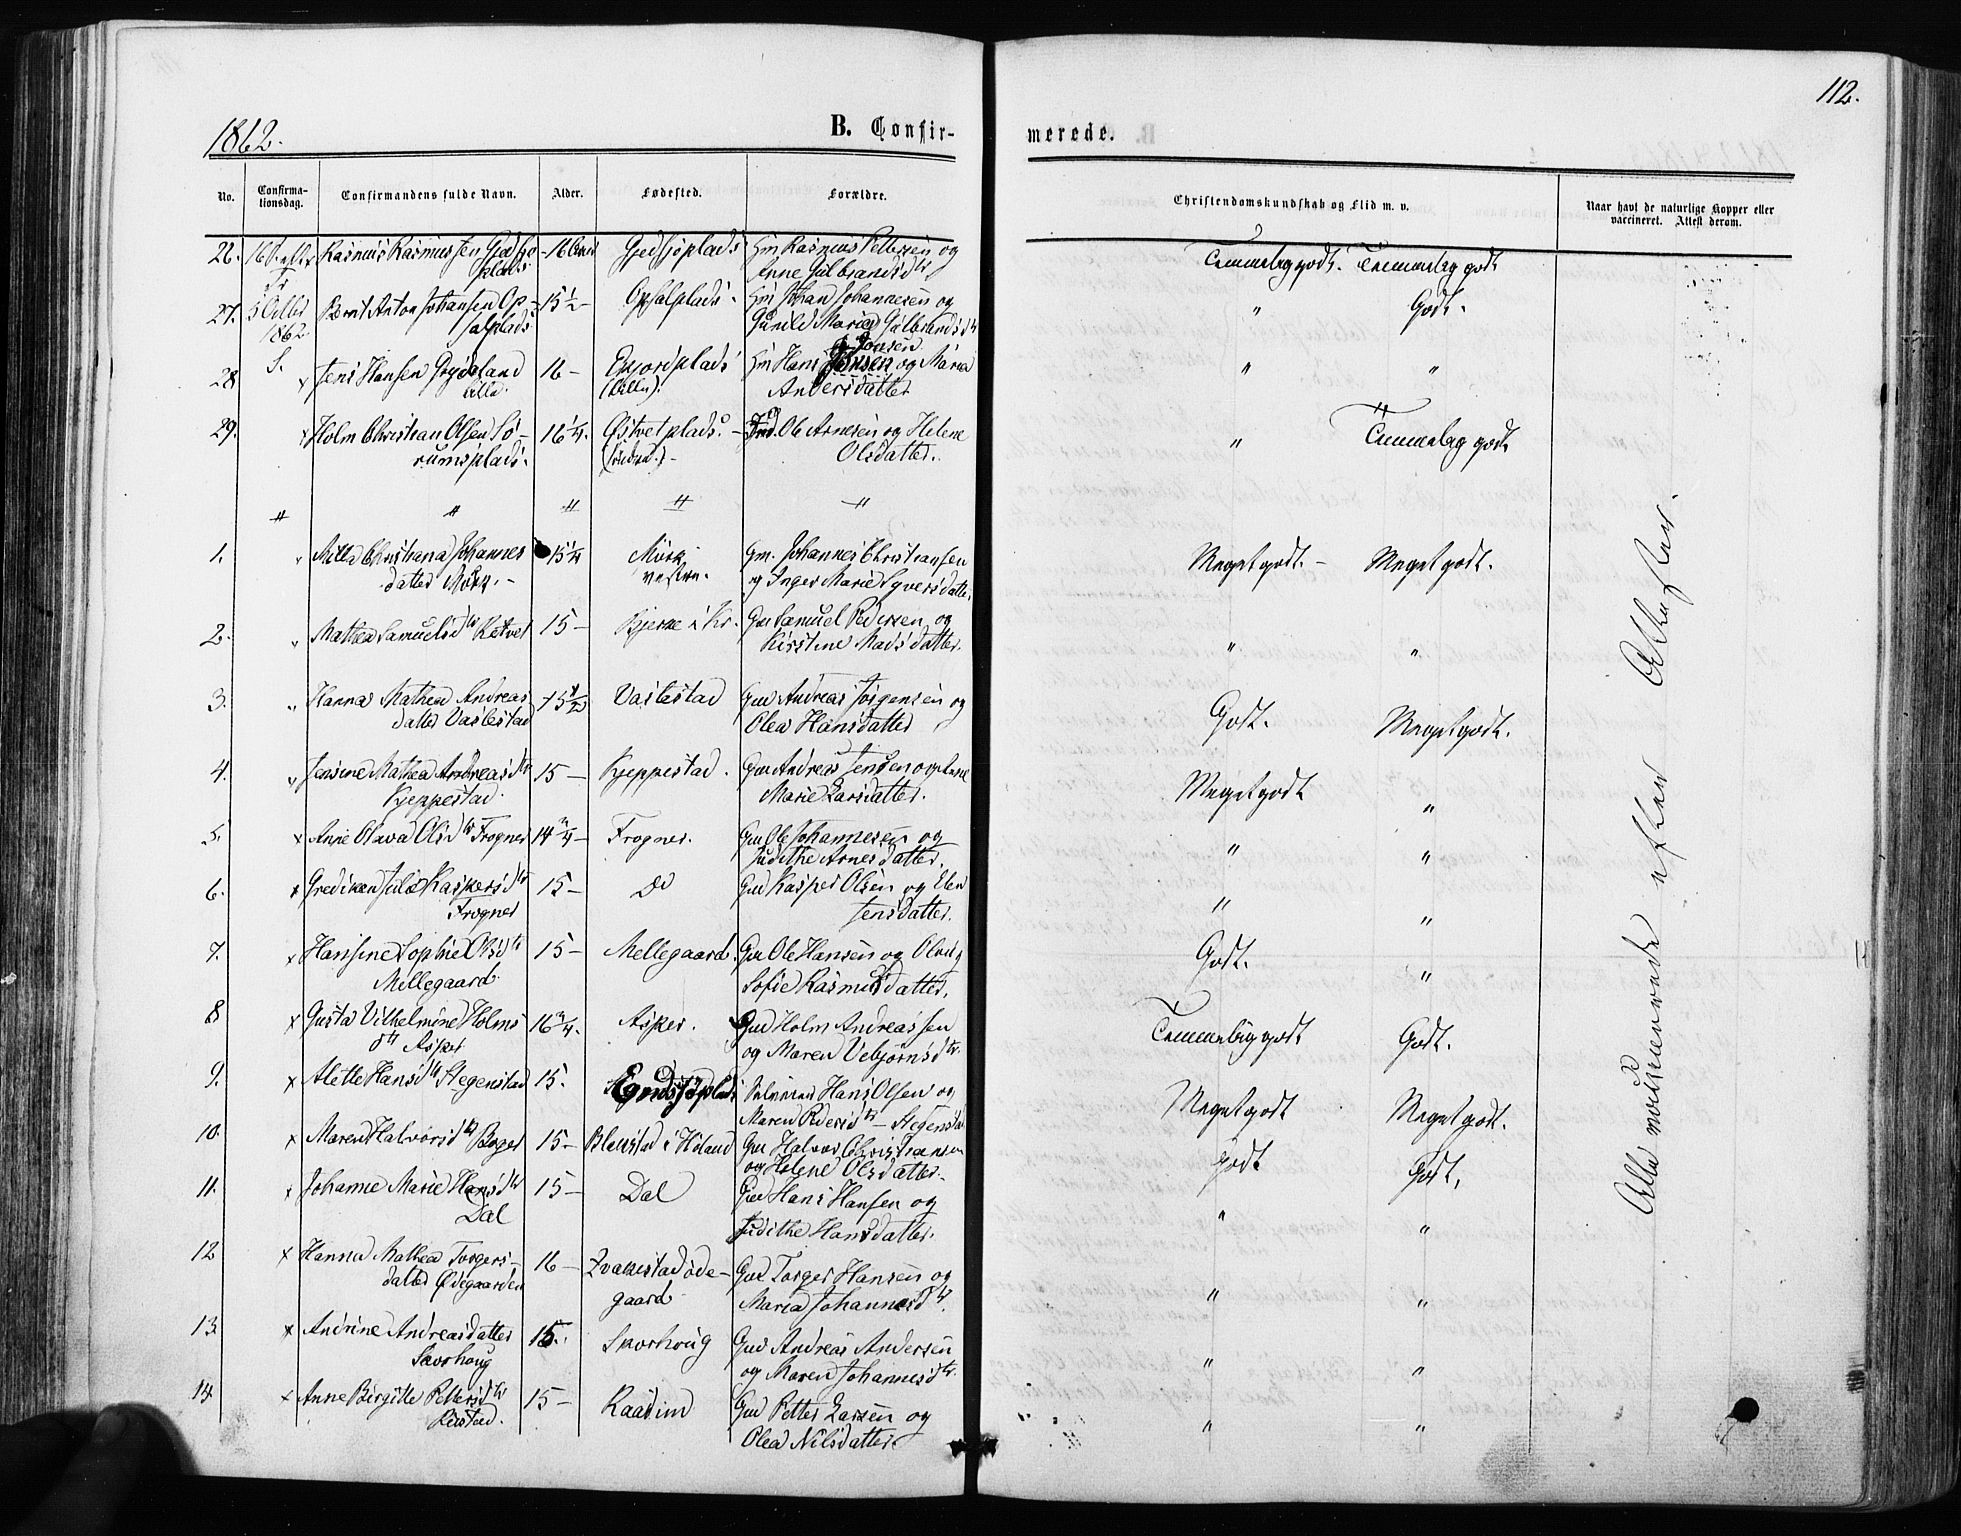 112.
1862.
B. Confir-
merede.
No.
Confirma-
tionsdag.
Confirmandens fulde Navn.
Alder.
Fødested.
Forældre.
Christendomskundskab og Flid m. v.
Naar havt de naturlige Kopper eller
vaccineret. Attest derom.
26. Rasmus Rasmussen Gjedsjø- 16 Gjedsjøplads Hm Rasmus Pettersen og Temmelig godt. Temmelig godt
plads Anne Gulbrandsdtr
27. 5 Octbr Bernt Anton Johansen Op- 15 1/2 - Opsalplads. Hm Johan Johannesen og " Godt.
1862 salplads Gunild Maria Gulbrandsdtr
S. Jonsen
28 x Jens Hansen lille. 16 - plads (lille). Hm Hans og Maria " "
Andersdatter
29. x Holm Christian Olsen Sø- 16 1/4. Østvetplads. - Ole Arnesen og Helene " Temmelig godt
rumsplads. (søndre.) - Olsdatter.
" " " " "
1. " Milla Christiana Johannes 15 1/4 Mørk Gm. Johannes Christiansen Meget godt. - Meget godt.
datter Mørk. - vestre. og Inger Marie Syversdatter
2. " Mathea Samuelsdtr Ketvet 15 - Bjerke i Kr. Gm Samuel Pedersen og " "
Kirstine Madsdatter.
3. " Hanna Mathea Andreas 15 1/2 Vaslestad Gm Andreas Jørgensen og Godt. Meget godt.
datter Vaslestad Olea Hansdatter
4. " Jensine Mathea Andreasdtr 15 - Kjeppestad. Gm Andreas Jensen og Anne Meget godt "
Kjeppestad. Marie Larsdatter.
5. x Anne Olava Olsdtr Frogner 14 3/4 - Frogner. Gm Ole Johannesen og " "
Judithe Arnesdatter.
6. x Grediken Julie Kaspersdtr 15 - Do Gm Kasper Olsen og Elen " "
Frogner Jensdatter.
7. x Hansine Sophie Olsdtr 15 - Mellegaard. Gm Ole Hansen og Godt. "
Mellegaard Sofie Rasmusdatter.
8 x Gusta Vilhelmine Holms 16 3/4. Asper. Gm Holm Andreassen Temmelig godt Godt.
dtr Asper og Maren Vebjørnsdtr.
9. x Alette Hansdtr Stegenstad 15. Hans Olsen og Meget godt Meget godt.
Maren Pedersdtr - Stegenstad
10. x Maren Halvorsdtr Boger 15 - Blakstad i Høland Gm Halvor Christiansen godt Godt.
og Helene Olsdatter.
11. x Johanne Marie Hansdtr 15 - Dal Gm Hans Hansen og " "
Dal Judithe Hansdatter.
12 x Hanna Mathea Torgers- 16 - Tvakestadøde- Gm Torger Hansen og " "
datter Ødegaarden gaard Maria Johannesdtr.
13. x Andrine Andreasdatter 15. Skorhoug Gm Andreas Andersen " "
Skorhoug og Maren Johannesdtr.
14 x Anne Birgitte Pettersdtr 15 - Raasum Gm Petter Larsen og " "
Olea Nilsdatter.
Alle vaccinerede efter Attester.